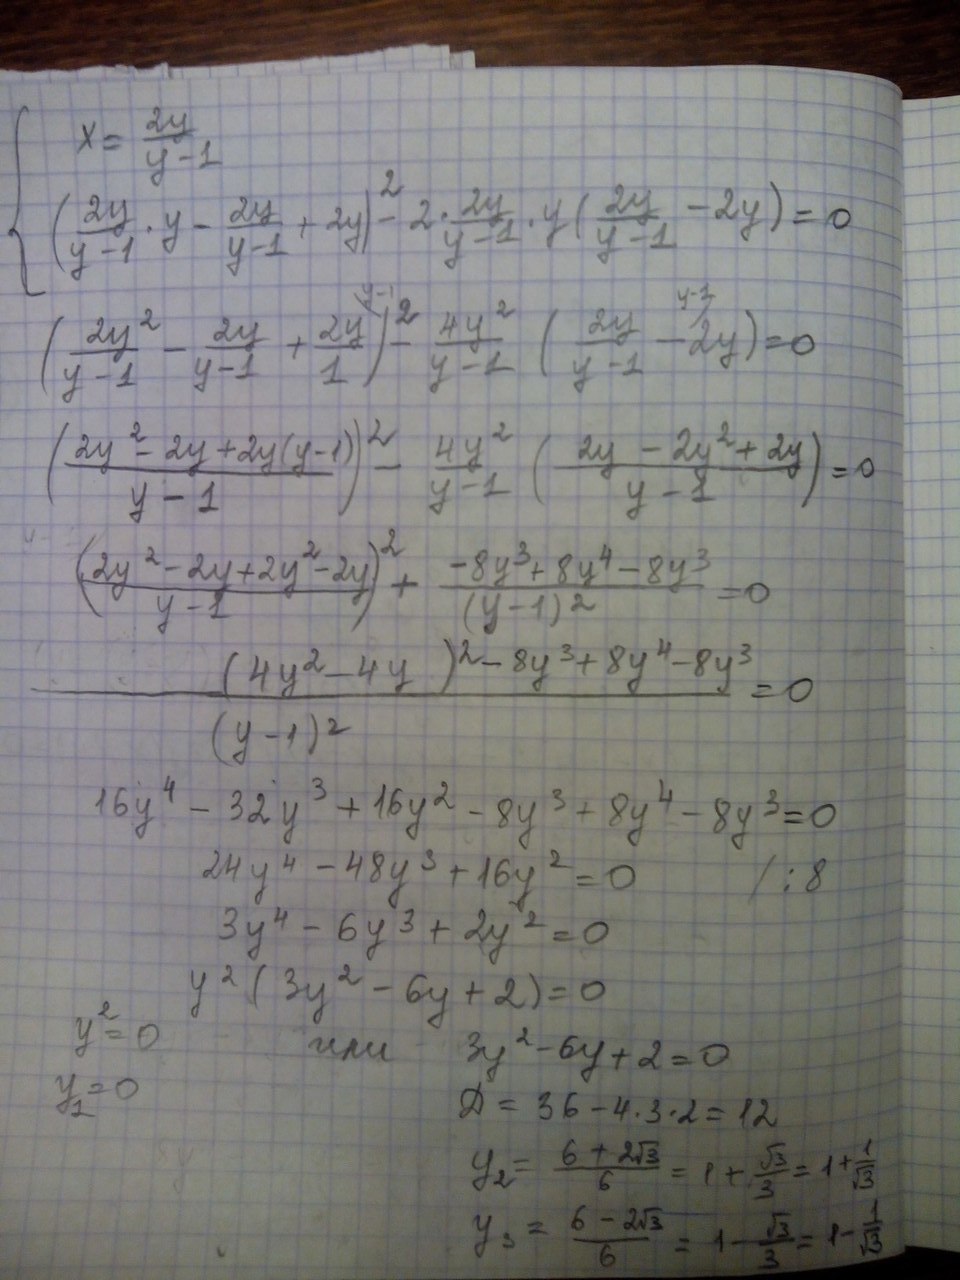 x = 2y/(y-1)
(2y/(y-1) · y - 2y/(y-1) + 2y)² - 2 · 2y/(y-1) · y (2y/(y-1) - 2y) = 0
(2y²/(y-1) - 2y/(y-1) + 2y/1 ^(y-1))² - 4y²/(y-1) (2y/(y-1) - 2y ^(y-1)) = 0
((2y² - 2y + 2y(y-1))/(y-1))² - 4y²/(y-1) ((2y - 2y² + 2y)/(y-1)) = 0
((2y² - 2y + 2y² - 2y)/(y-1))² + (-8y³ + 8y⁴ - 8y³)/(y-1)² = 0
((4y² - 4y)² - 8y³ + 8y⁴ - 8y³)/(y-1)² = 0
16y⁴ - 32y³ + 16y² - 8y³ + 8y⁴ - 8y³ = 0
24y⁴ - 48y³ + 16y² = 0 /:8
3y⁴ - 6y³ + 2y² = 0
y² (3y² - 6y + 2) = 0
y² = 0 или 3y² - 6y + 2 = 0
y₁ = 0
D = 36 - 4·3·2 = 12
y₂ = (6 + 2√3)/6 = 1 + √3/3 = 1 + 1/√3
y₃ = (6 - 2√3)/6 = 1 - √3/3 = 1 - 1/√3